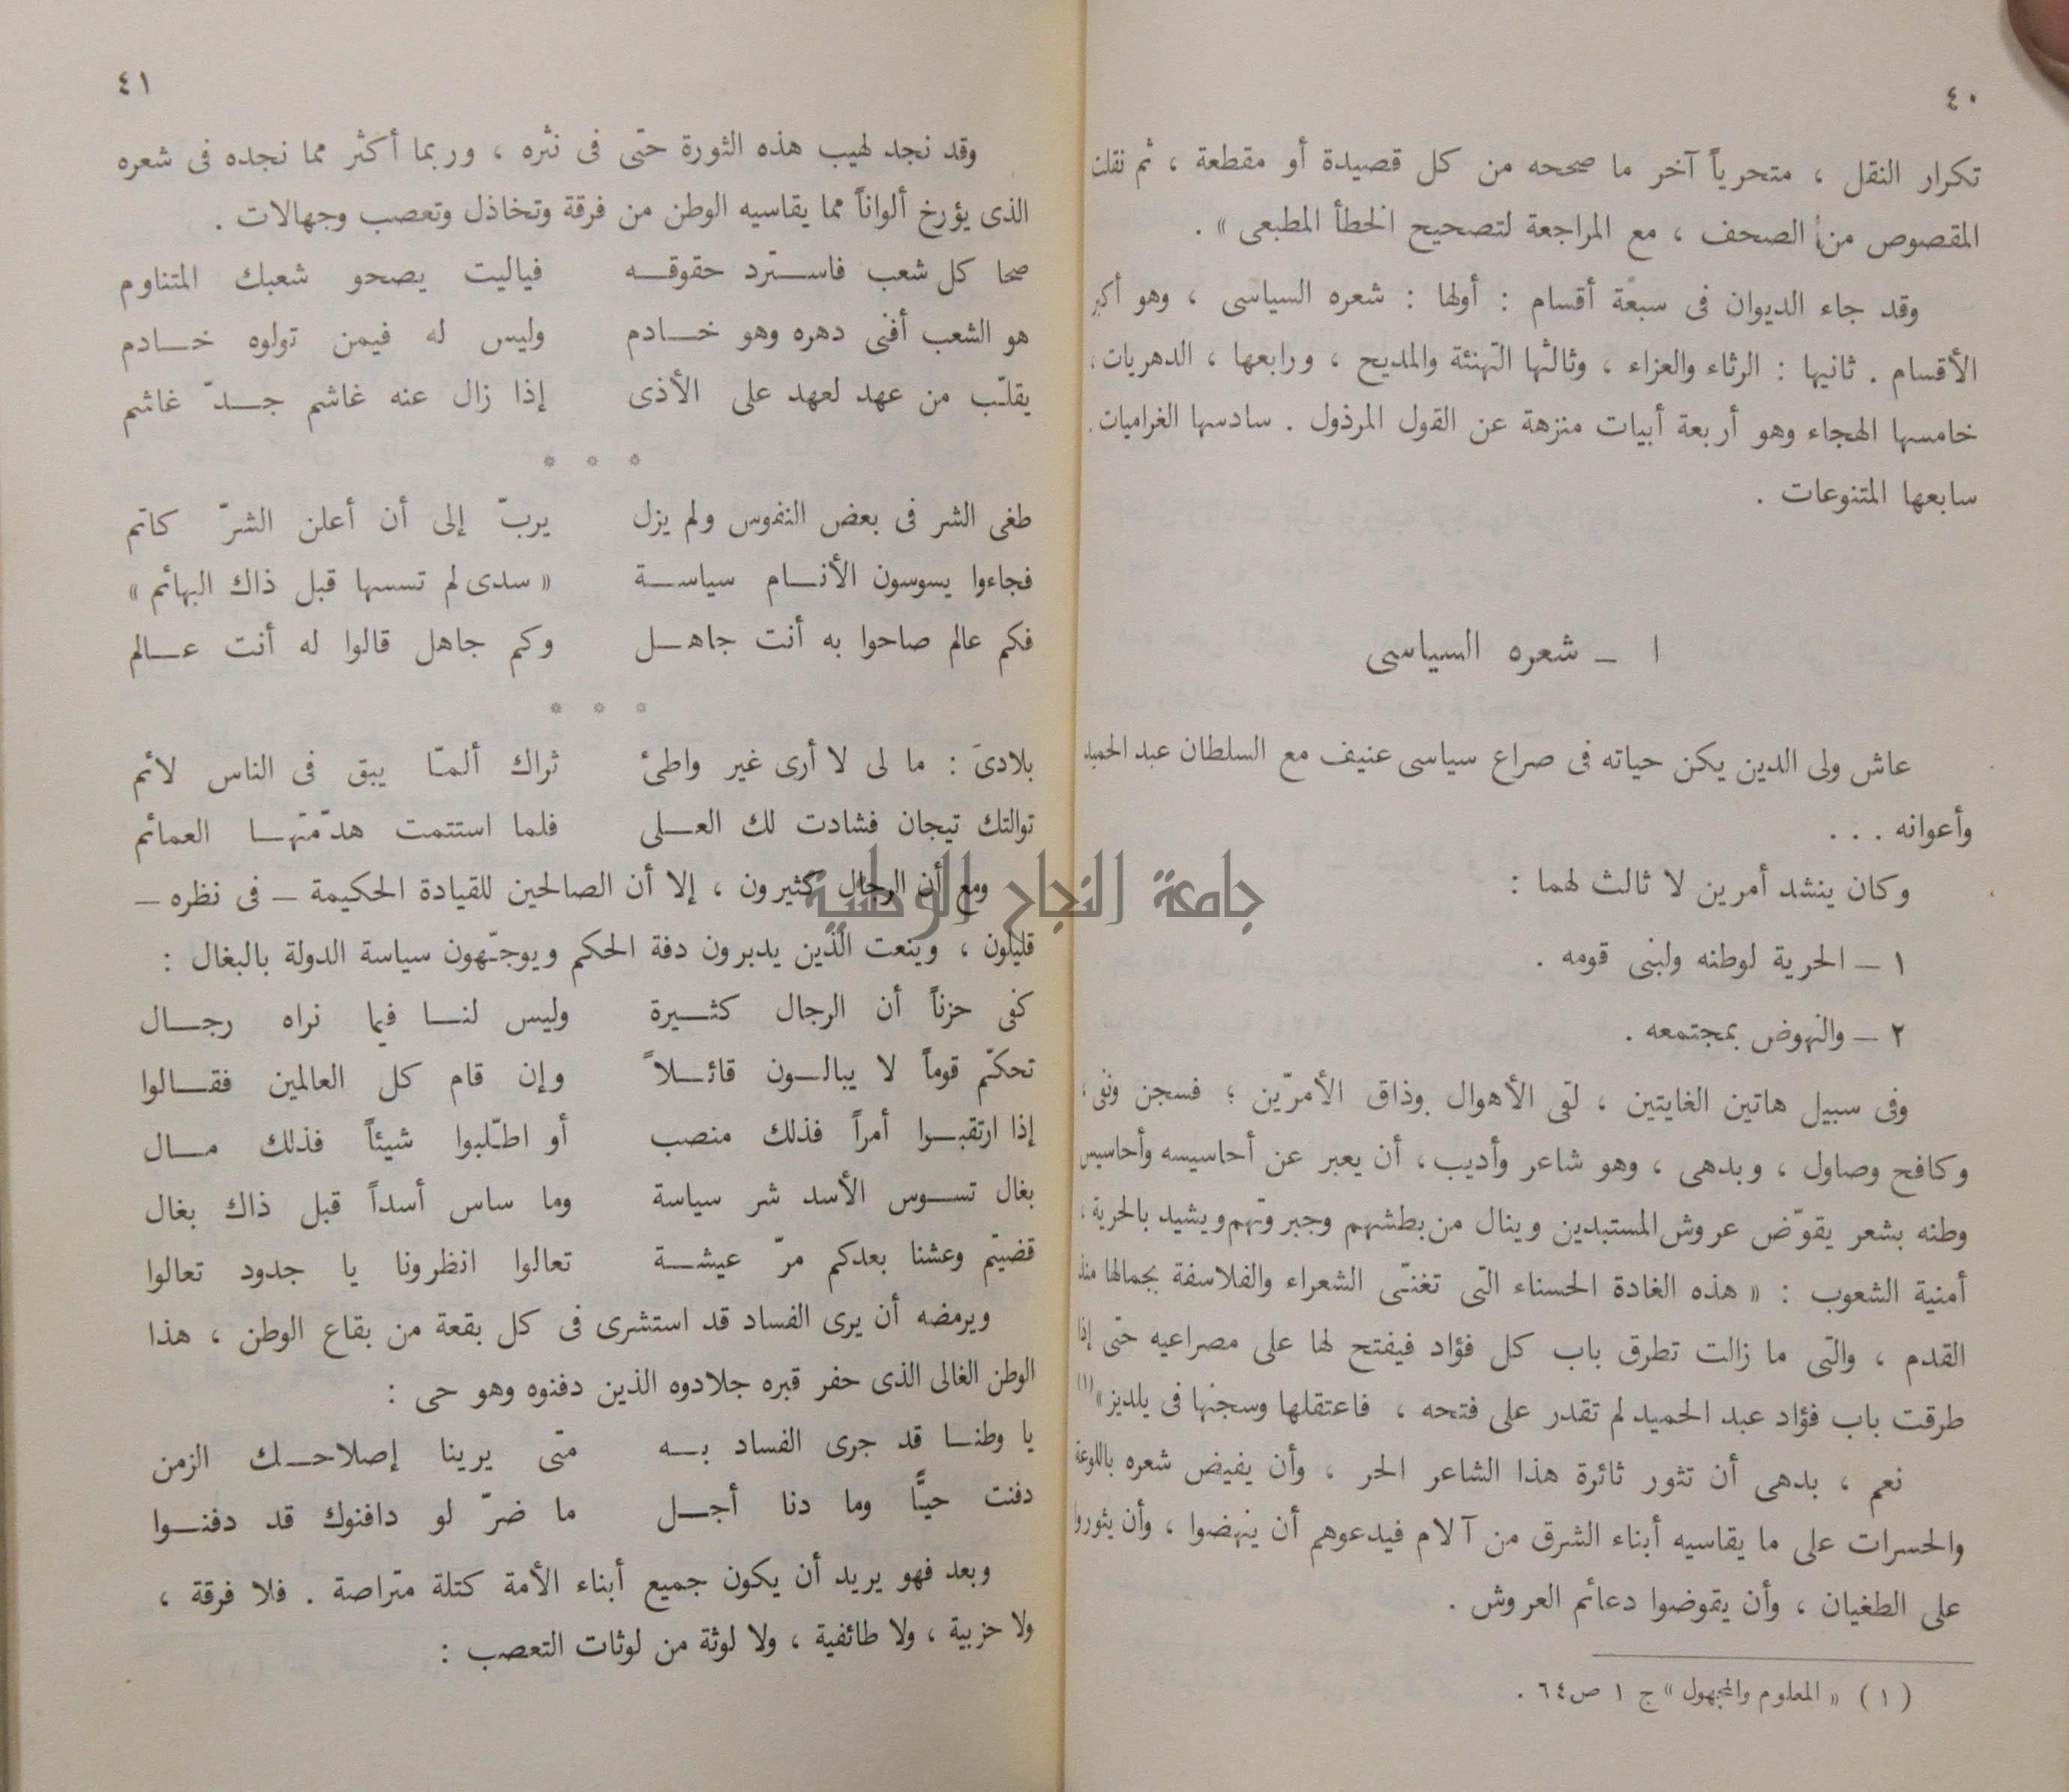 ٤٠
تكرار النقل ، متحرياً آخر ما صححه من كل قصيدة أو مقطعة ، ثم نقلت
المقصوص من الصحف ، مع المراجعة لتصحيح الخطأ المطبعى » .
وقد جاء الديوان فى سبعة أقسام : أولها : شعره السياسى ، وهو أكبر
الأقسام . ثانيها : الرثاء والعزاء ، وثالثها التهنئة والمديح ، ورابعها ، الدهريات ،
خامسها الهجاء وهو أربعة أبيات منزهة عن القول المرذول . سادسها الغراميات .
سابعها المتنوعات .
١ – شعره السياسى
عاش ولى الدين يكن حياته فى صراع سياسى عنيف مع السلطان عبد الحميد
وأعوانه . . .
وكان ينشد أمرين لا ثالث لهما :
١ – الحرية لوطنه ولبنى قومه .
٢ – والنهوض بمجتمعه .
وفى سبيل هاتين الغايتين ، لقى الأهوال وذاق الأمرّين ؛ فسجن ونفى ،
وكافح وصاول ، وبدهى ، وهو شاعر وأديب ، أن يعبر عن أحاسيسه وأحاسيس
وطنه بشعر يقوّض عروش المستبدين وينال من بطشهم وجبروتهم ويشيد بالحرية ،
أمنية الشعوب : « هذه الغادة الحسناء التى تغنّى الشعراء والفلاسفة بجمالها منذ
القدم ، والتى ما زالت تطرق باب كل فؤاد فيفتح لها على مصراعيه حتى إذا
طرقت باب فؤاد عبد الحميد لم تقدر على فتحه ، فاعتقلها وسجنها فى يلديز » (١)
نعم ، بدهى أن تثور ثائرة هذا الشاعر الحر ، وأن يفيض شعره باللوعة
والحسرات على ما يقاسيه أبناء الشرق من آلام فيدعوهم أن ينهضوا ، وأن يثوروا
على الطغيان ، وأن يقوضوا دعائم العروش .
(١) « المعلوم والمجهول » ج ١ ص ٦٤ .
٤١
وقد نجد لهيب هذه الثورة حتى فى نثره ، وربما أكثر مما نجده فى شعره
الذى يؤرخ ألواناً مما يقاسيه الوطن من فرقة وتخاذل وتعصب وجهالات .
صحا كل شعب فاسترد حقوقه فياليت يصحو شعبك المتناوم
هو الشعب أفنى دهره وهو خادم وليس له فيمن تولوه خادم
يقلّب من عهد لعهد على الأذى إذا زال عنه غاشم جدّ غاشم
* * *
طغى الشر فى بعض النفوس ولم يزل يربّ إلى أن أعلن الشرّ كاتم
فجاءوا يسوسون الأنام سياسة « سدى لم تسسها قبل ذاك البهائم »
فكم عالم صاحوا به أنت جاهل وكم جاهل قالوا له أنت عالم
* * *
بلادىَ : ما لى لا أرى غير واطئ ثراك ألمّا يبق فى الناس لائم
توالتك تيجان فشادت لك العلى فلما استتمت هدّمتها العمائم
ومع أن الرجال كثيرون ، إلا أن الصالحين للقيادة الحكيمة – فى نظره –
قليلون ، وينعت الذين يدبرون دفة الحكم ويوجّهون سياسة الدولة بالبغال :
كفى حزناً أن الرجال كثيرة وليس لنا فيما نراه رجال
تحكّم قوماً لا يبالون قائلاً وإن قام كل العالمين فقالوا
إذا ارتقبوا أمراً فذلك منصب أو اطّلبوا شيئاً فذلك مال
بغال تسوس الأسد شر سياسة وما ساس أسداً قبل ذاك بغال
قضيتم وعشنا بعدكم مرّ عيشة تعالوا انظرونا يا جدود تعالوا
ويرمضه أن يرى الفساد قد استشرى فى كل بقعة من بقاع الوطن ، هذا
الوطن الغالى الذى حفر قبره جلادوه الذين دفنوه وهو حى :
يا وطنا قد جرى الفساد به متى يرينا إصلاحك الزمن
دفنت حيًّا وما دنا أجل ما ضرّ لو دافنوك قد دفنوا
وبعد فهو يريد أن يكون جميع أبناء الأمة كتلة متراصة . فلا فرقة ،
ولا حزبية ، ولا طائفية ، ولا لوثة من لوثات التعصب :
جامعة النجاح الوطنية